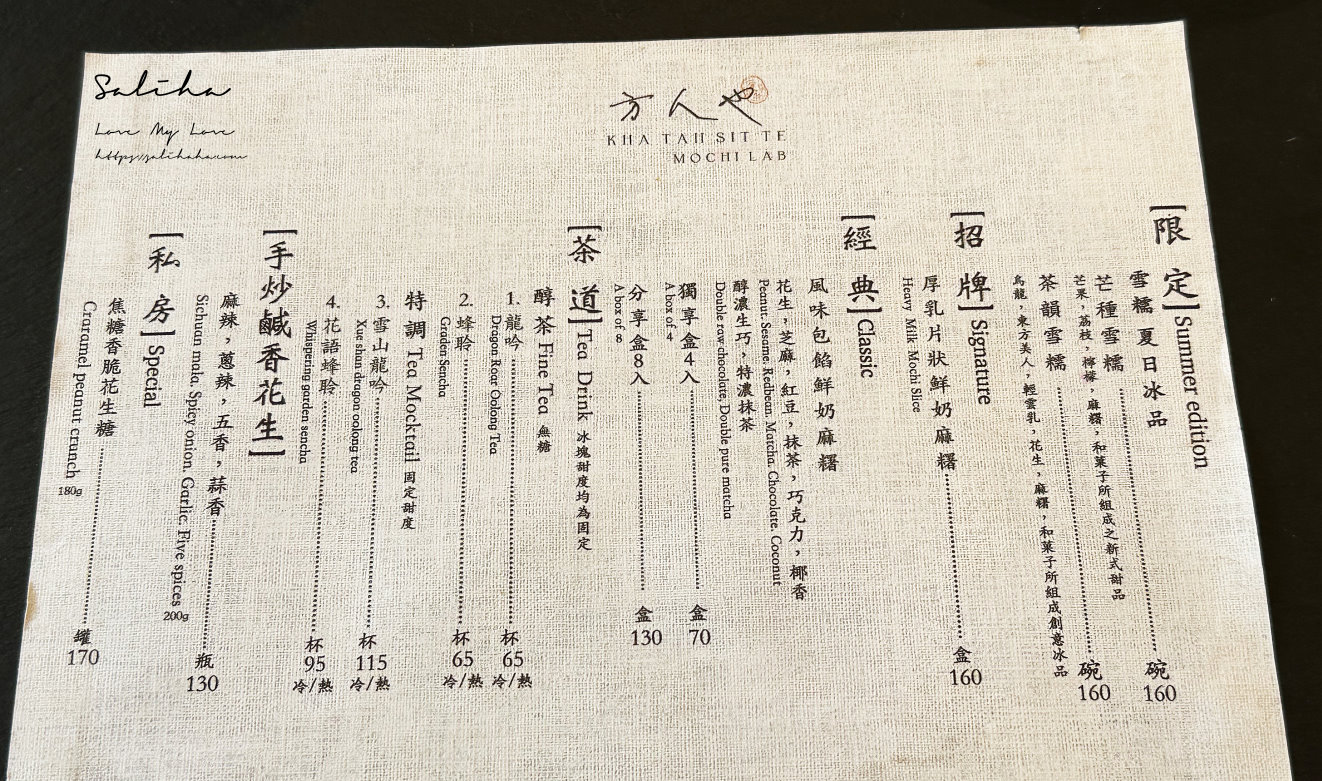 Saliha
Love My Love
https://salihaha.com
方人也
KHA TAH SIT TE
MOCHI LAB
[限定] Summer edition
雪糯夏日冰品
芒種雪糯 碗 160
芒果，荔枝，檸檬，麻糬，和菓子所組成之新式甜品
茶韻雪糯 碗 160
烏龍，東方美人，輕雲乳，花生，麻糬，和菓子所組成創意冰品
[招牌] Signature
厚乳片狀鮮奶麻糬 盒 160
Heavy Milk Mochi Slice
[經典] Classic
風味包餡鮮奶麻糬
花生，芝麻，紅豆，抹茶，巧克力，椰香
Peanut. Sesame. Redbean. Matcha. Chocolate. Coconut
醇濃生巧，特濃抹茶
Double raw chocolate, Double pure matcha
獨享盒4入 盒 70
A box of 4
分享盒8入 盒 130
A box of 8
[茶道] Tea Drink 冰塊甜度均為固定
醇茶 Fine Tea 無糖
1. 龍吟 杯 65 冷/熱
Dragon Roar Oolong Tea
2. 蜂聆 杯 65 冷/熱
Graden Sencha
特調 Tea Mocktail 固定甜度
3. 雪山龍吟 杯 115 冷/熱
Xue shan dragon oolong tea
4. 花語蜂聆 杯 95 冷/熱
Whispering garden sencha
[手炒鹹香花生]
麻辣，蔥辣，五香，蒜香 瓶 130
Sichuan mala. Spicy onion. Garlic. Five spices 200g
[私房] Special
焦糖香脆花生糖 罐 170
Craramel peanut crunch 180g